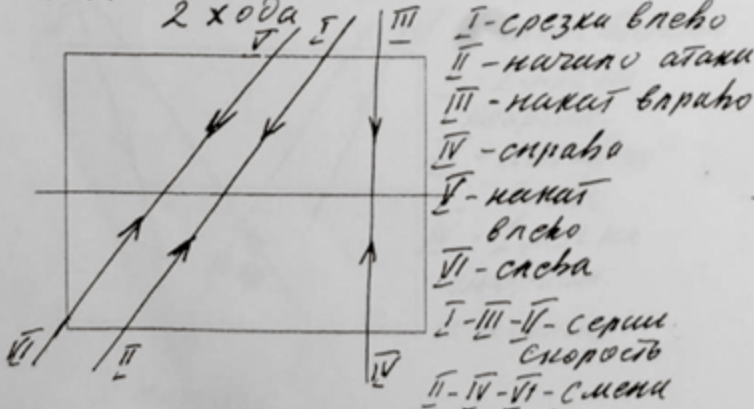 2 хода
V I III
I - срезка влево
II - начало атаки
III - накат вправо
IV - справа
V - накат
влево
VI - слева
I - III - V - серии
скорость
VI II IV
II - IV - VI - смени